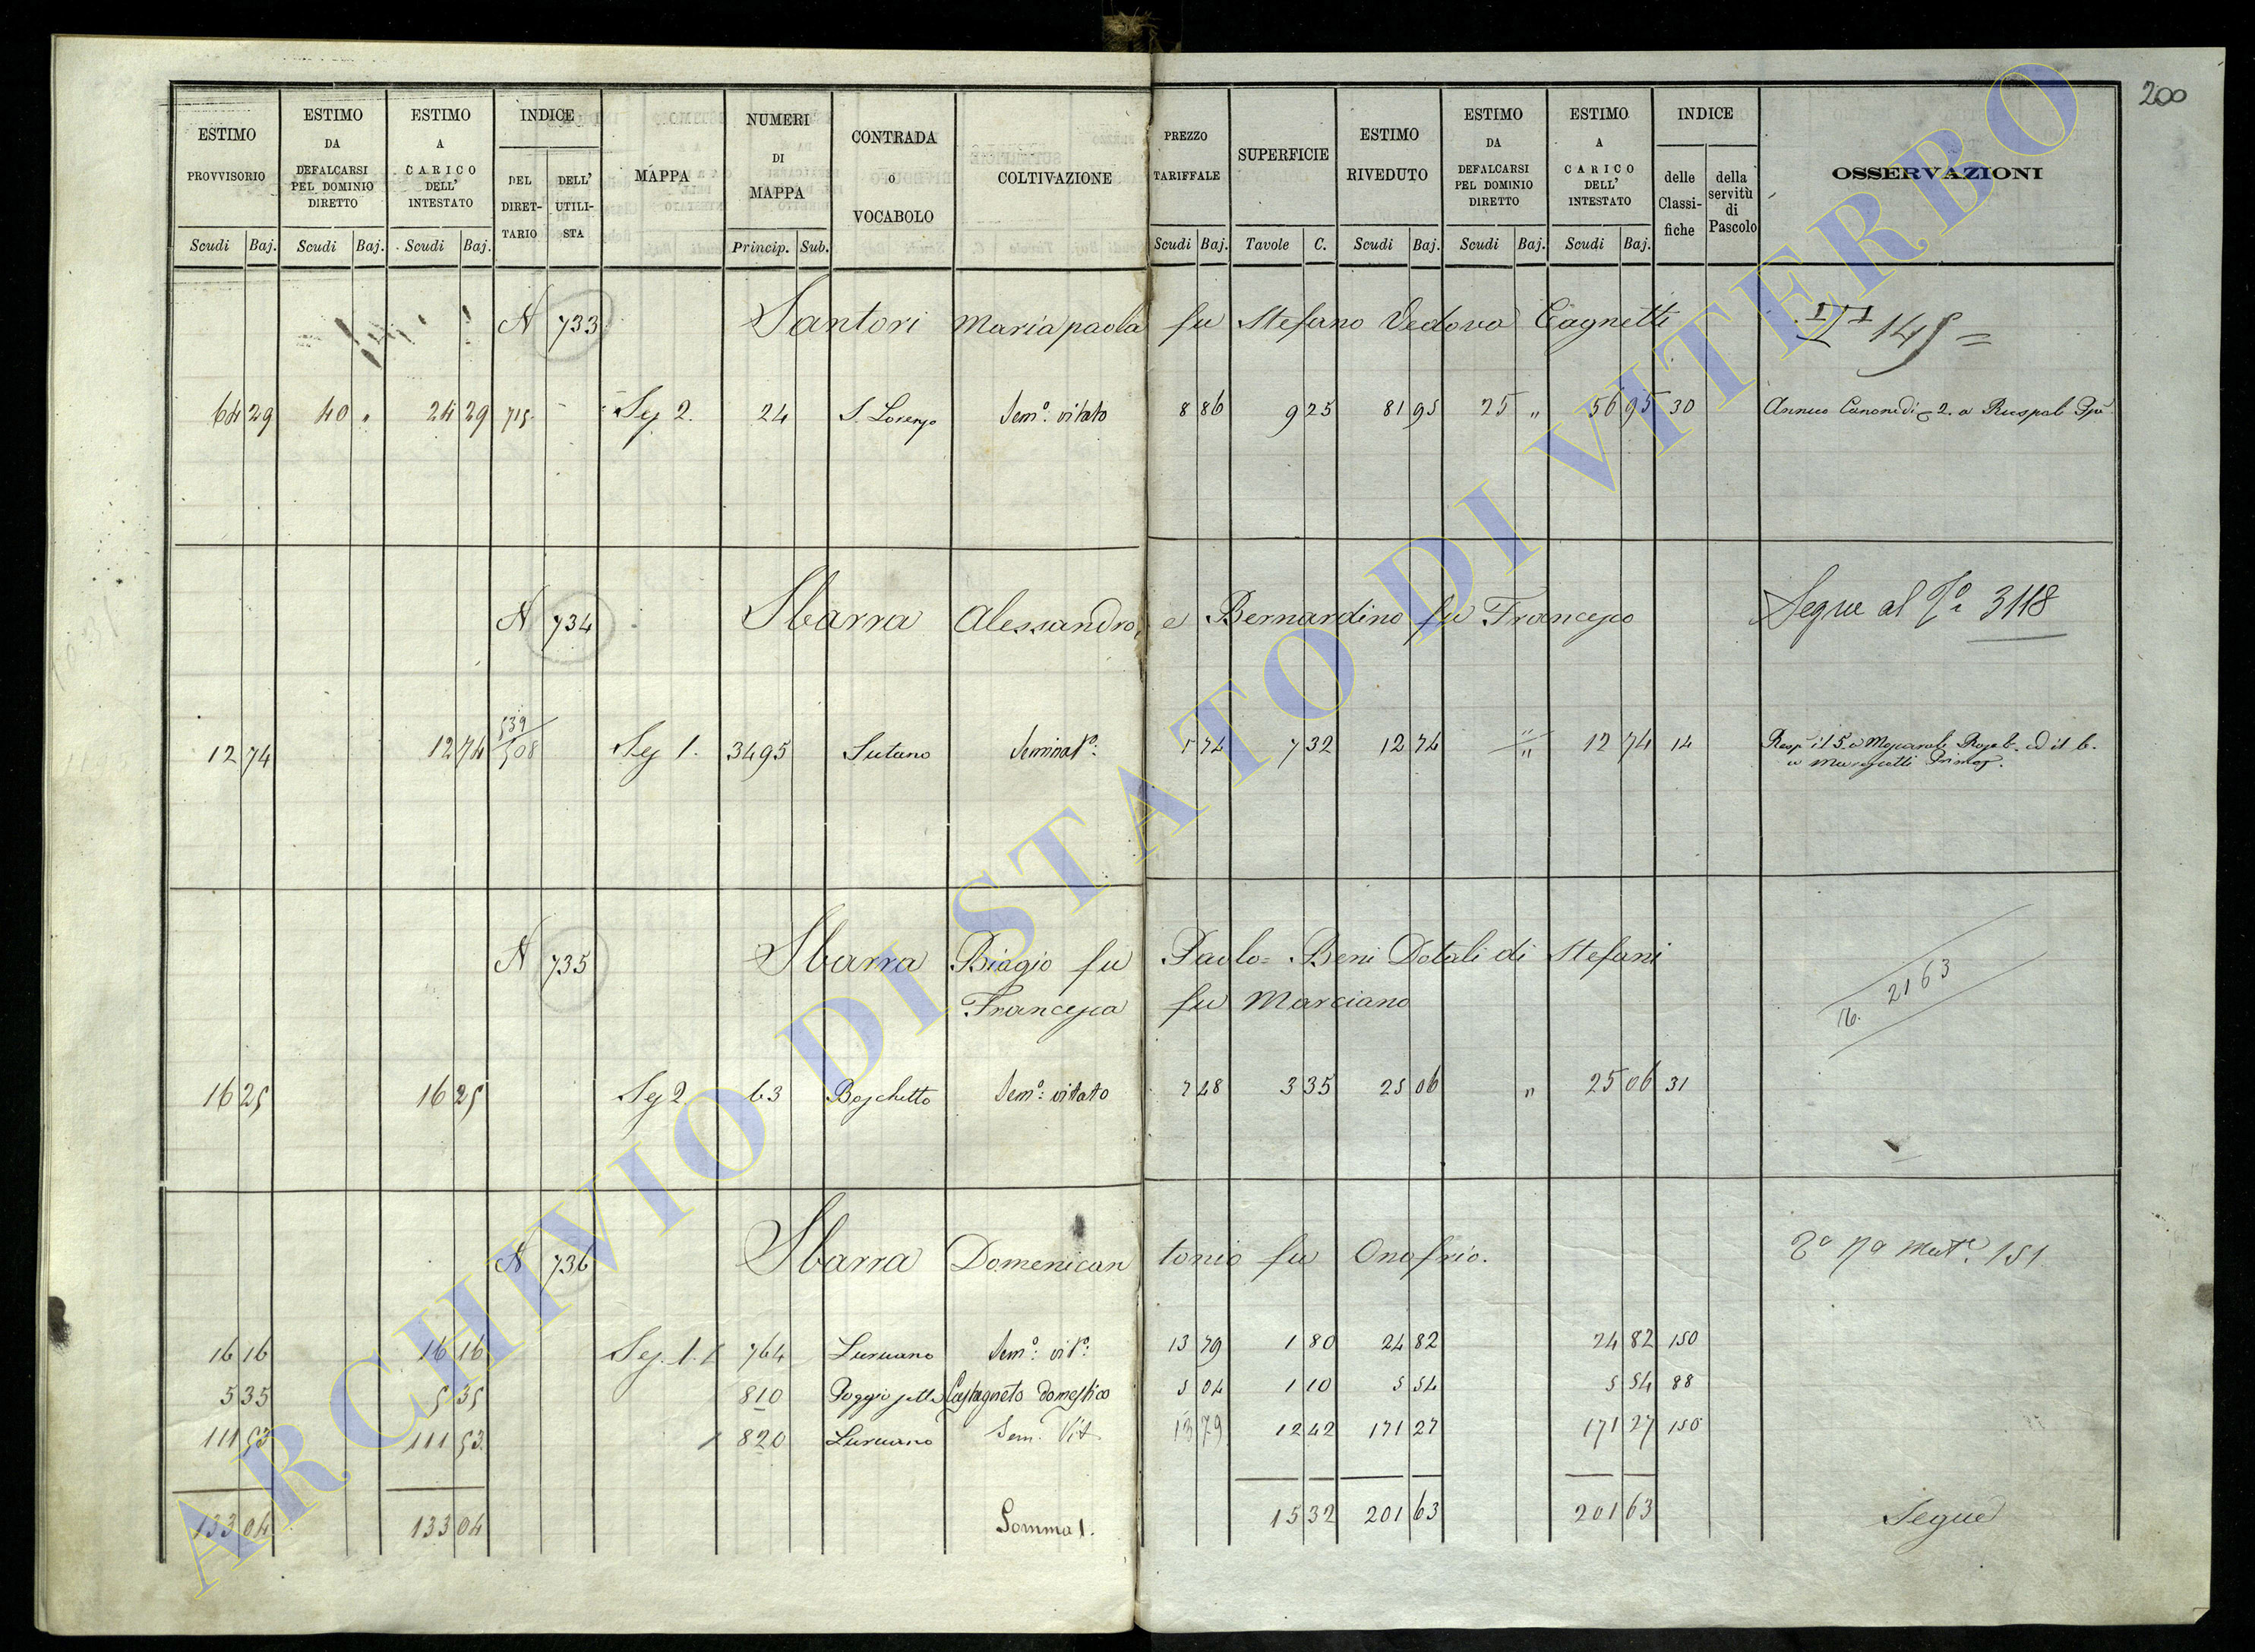 200
ESTIMO PROVVISORIO Scudi Baj.
ESTIMO DA DEFALCARSI PEL DOMINIO DIRETTO Scudi Baj.
ESTIMO A CARICO DELL' INTESTATO Scudi Baj.
INDICE DEL DIRET-TARIO DELL' UTILI-STA
MAPPA
NUMERI DI MAPPA Princip. Sub.
CONTRADA O VOCABOLO
COLTIVAZIONE
PREZZO TARIFFALE Scudi Baj.
SUPERFICIE Tavole C.
ESTIMO RIVEDUTO Scudi Baj.
ESTIMO DA DEFALCARSI PEL DOMINIO DIRETTO Scudi Baj.
ESTIMO A CARICO DELL' INTESTATO Scudi Baj.
INDICE delle Classi-fiche della servitù di Pascolo
OSSERVAZIONI
N 733 Santori Mariapaola fu Stefano Vedova Cagnetti 145 =
64 29 40 " 24 29 715 Sez 2. 24 S. Lorenzo Sem.º vitato 8 86 9 25 81 95 25 " 56 95 30 Annuo Canone di 2. a
N 734 Sbarra Alessandro, e Bernardino fu Francesco Segue al 3118
539
12 74 12 74 508 Sez 1. 3495 Sutano Seminatº: 1 74 7 32 12 74 " 12 74 14
"
N 735 Sbarra Biagio fu Paolo = Beni Dotali di Stefani
Francesca fu Marciano
2163
16 25 16 25 Sez 2 63 Boschetto Sem.º vitato 7 48 3 35 25 06 " 25 06 31
N 736 Sbarra Domenicantonio fu Onofrio. 151
16 16 16 16 Sez. 1. 764 Luruano Sem.º: vitº: 13 79 1 80 24 82 24 82 150
5 35 5 35 810 Castagneto domestico 5 04 1 10 5 54 5 54 88
111 53 111 53. 820 Luruano Sem. Vit 13 79 12 42 171 27 171 27 150
133 04 133 04 Somma 1. 15 32 201 63 201 63 Segue
ARCHIVIO DI STATO DI VITERBO